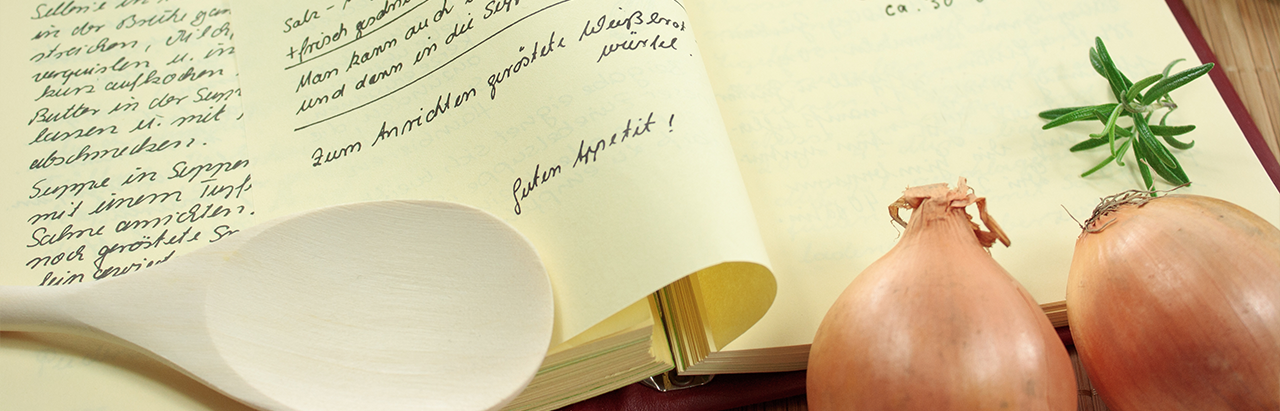 Sellerie in
in der Brühe gar
streichen, Milch,
verquirlen u. in
kurz aufkochen.
Butter in der Supp
lassen u. mit
abschmecken.
Suppe in Suppen
mit einem Tupf
Sahne anrichten.
noch geröstete
fein
Salz-
+ frisch
Man kann auch
und dann in die Supp
Zum Anrichten geröstete Weißbrot
würfel.
Guten Appetit!
ca. 30